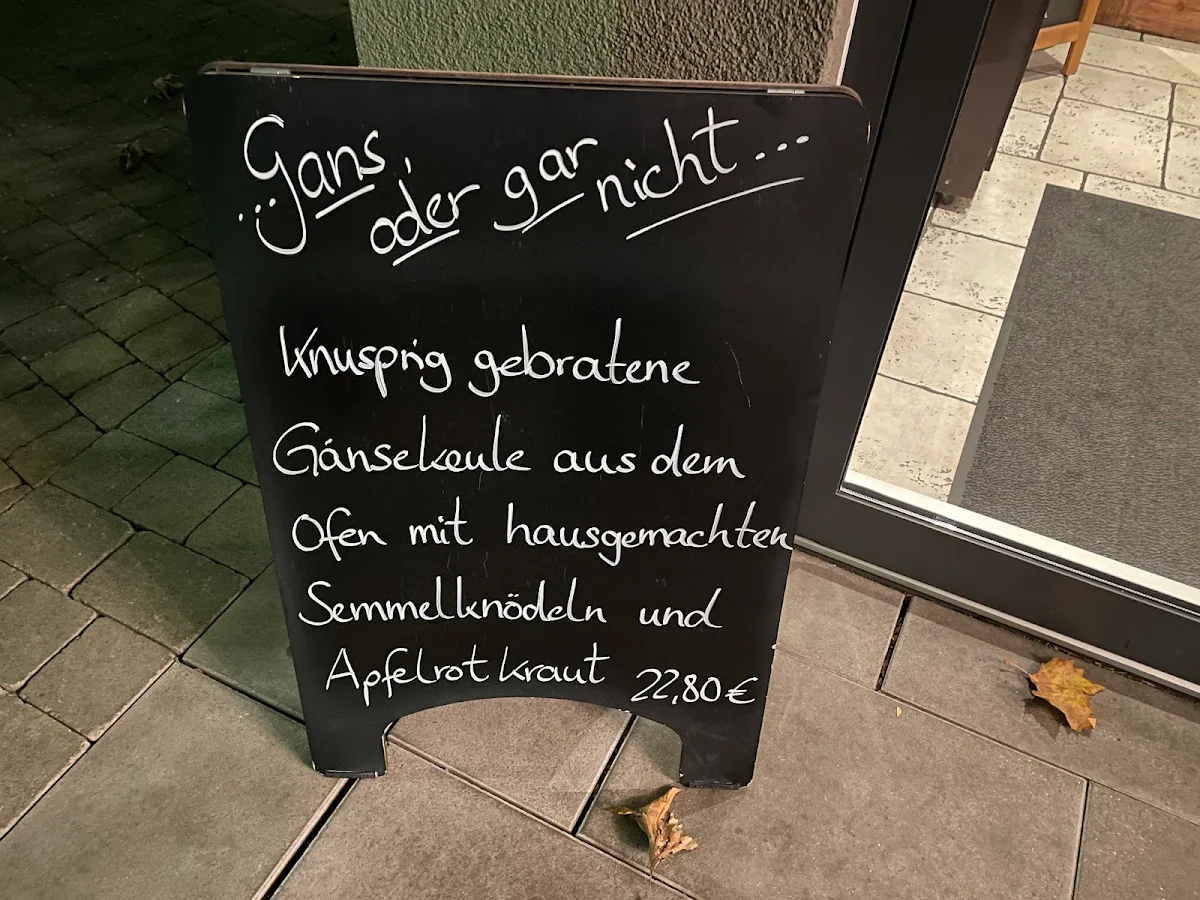 ...Gans, oder gar nicht...
Knusprig gebratene
Gänsekeule aus dem
Ofen mit hausgemachten
Semmelknödeln und
Apfelrotkraut 22,80€